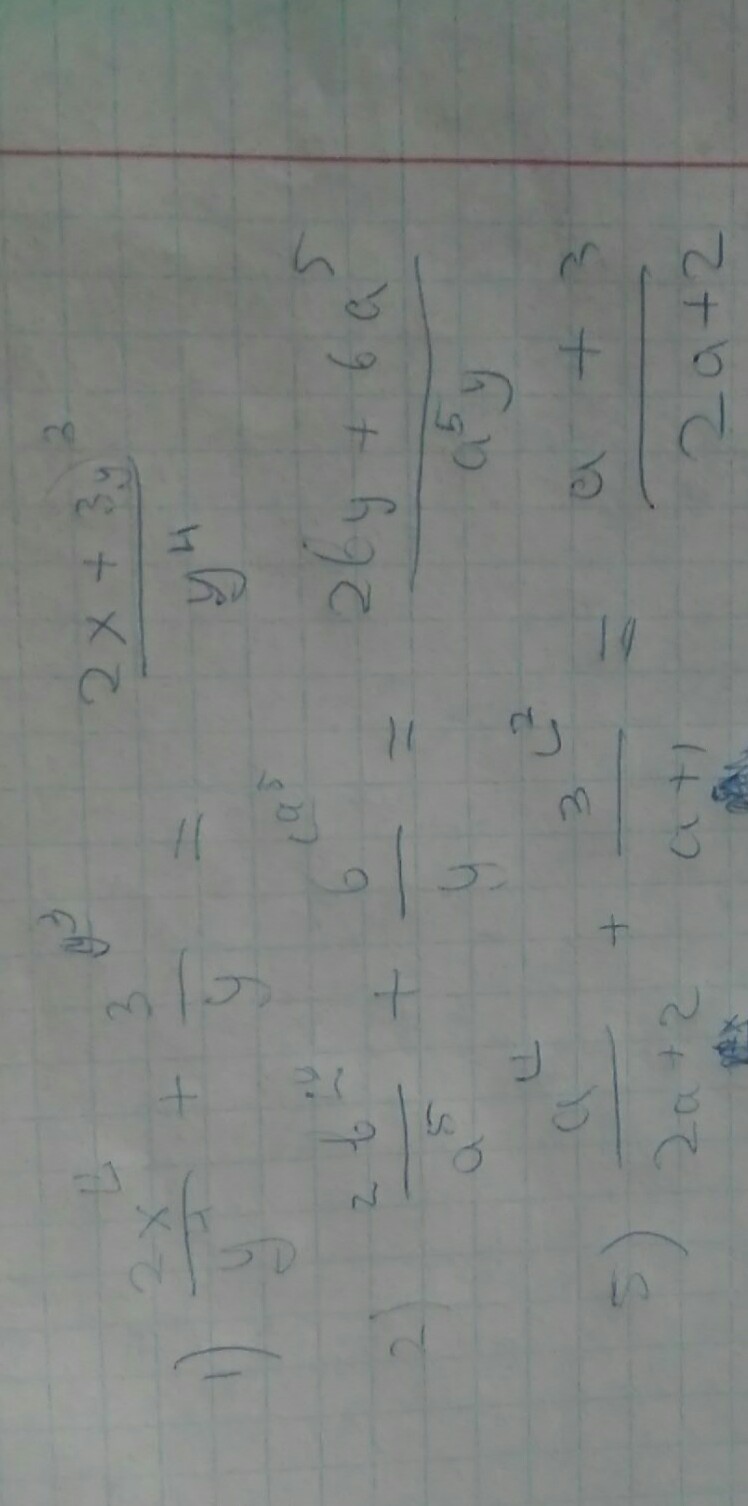 1) 2x/y⁴ + 3/y y³ = (2x + 3y³)/y⁴
2) 2b/a⁵ + 6/y a⁵ = (2by + 6a⁵)/a⁵y
5) a/(2a+2) + 3/(a+1) 2 = (a + 3)/(2a+2)